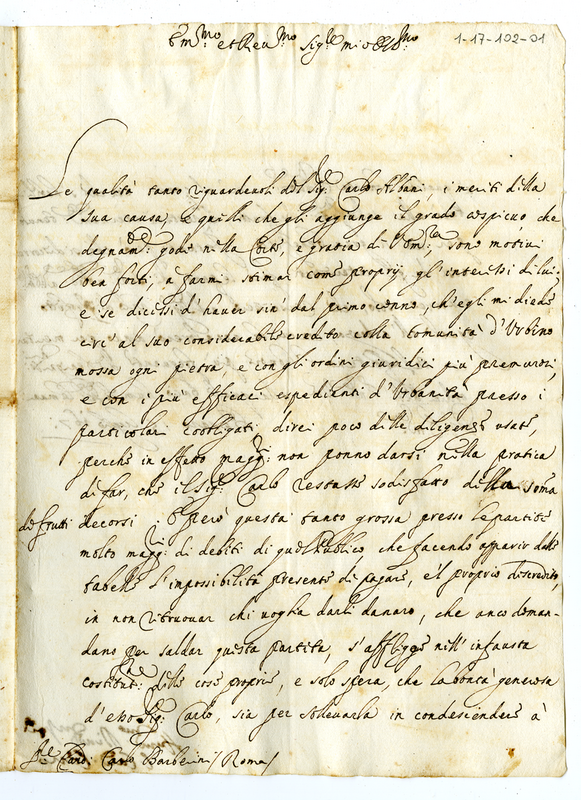 Em.mo et Reu.mo Sig.re mio Oss.mo
1-17-102-01
Le qualità tanto riguardeuoli del Sig.re Carlo Albani, i meriti della
sua causa, e quelli che gli aggiunge il grado cospicuo, che
degnam.te gode nella Corte, e gratia di V. Em.za, sono motiui
ben forti, a farmi stimar come proprij gl'interessi di lui;
e se dicessi d'hauer sin' dal primo cenno, ch'egli mi diede
circ' al suo considerabile credito colla Comunità d'Urbino
mossa ogni pietra, e con gli ordini giuridici più premurosi,
e con i più efficaci espedienti d'Urbanità presso i
particolari coobligati direi poco delle diligenze usate,
perche in effetto magg.ri non ponno darsi nella pratica
di far, che il Sig.re Carlo restasse sodisfatto della soma
de frutti decorsi; È però questa tanto grossa presso le partite
molto magg.ri di debiti di quel Publico che facendo apparir dalle
tabelle l'impossibilità presente di pagare, e'l proprio discredito,
in non ritruouar chi uoglia darli danaro, che anco deman-
dano per saldar questa partita, s'affligge nell'infausta
costitut.ne delle cose proprie, e solo spera, che la bontà generosa
d'esso Sig.re Carlo, sia per solleuarla in condescendere à
S.re Card. Carlo Barberini / Roma /